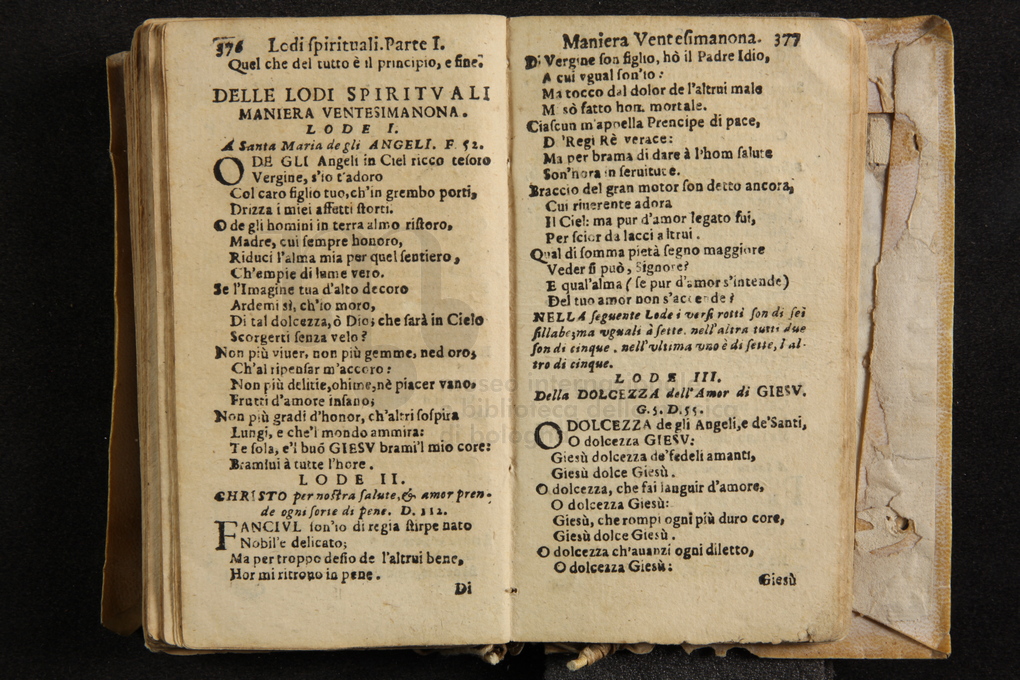 376 Lodi spirituali.Parte I.
Quel che del tutto è il principio, e fine.
DELLE LODI SPIRITVALI
MANIERA VENTESIMANONA.
LODE I.
A Santa Maria degli ANGELI. F. 52.
O DE GLI Angeli in Ciel ricco tesoro
Vergine, s'io t'adoro
Col caro figlio tuo,ch'in grembo porti,
Drizza i miei affetti storti.
O de gli homini in terra almo ristoro,
Madre, cui sempre honoro,
Riduci l'alma mia per quel sentiero,
Ch'empie di lume vero.
Se l'Imagine tua d'alto decoro
Ardemi sì, ch'io moro,
Di tal dolcezza, ò Dio; che sarà in Cielo
Scorgerti senza velo?
Non più viuer, non più gemme, ned oro,
Ch'al ripensar m'accoro:
Non più delitie,ohime,nè piacer vano,
Frutti d'amore insano;
Non più gradi d'honor, ch'altri sospira
Lungi, e che'l mondo ammira:
Te sola, e'l buō GIESV brami'l mio core:
Bramlui à tutte l'hore.
LODE II.
CHRISTO per nostra salute,& amor pren-
de ogni sorte di pene. D. 112.
FANCIVL son'io di regia stirpe nato
Nobil'e delicato;
Ma per troppo desio de l'altrui bene,
Hor mi ritrouo in pene.
Di
Maniera Ventesimanona. 377
Di Vergine son figlio, hò il Padre Idio,
A cui vgual son'io:
Ma tocco dal dolor de l'altrui male
M sò fatto hom mortale.
Ciascun m'appella Prencipe di pace,
D 'Regi Rè verace:
Ma per brama di dare à l'hom salute
Son'hora in seruitute.
Braccio del gran motor son detto ancora,
Cui riuerente adora
Il Ciel: ma pur d'amor legato fui,
Per scior da lacci altrui.
Qual di somma pietà segno maggiore
Veder si può, Signore?
E qual'alma ( se pur d'amor s'intende)
Del tuo amor non s'accende?
NELLA seguente Lode i versi rotti son di sei
sillabe;ma vguali à sette. nell'altra tutti due
son di cinque. nell'vltima vno è di sette, l'al-
tro di cinque.
LODE III.
Della DOLCEZZA dell'Amor di GIESV.
G. 5. D. 55.
O DOLCEZZA degli Angeli,e de'Santi,
O dolcezza GIESV:
Giesù dolcezza de'fedeli amanti,
Giesù dolce Giesù.
O dolcezza, che fai languir d'amore,
O dolcezza Giesù:
Giesù, che rompi ogni più duro core,
Giesù dolce Giesù.
O dolcezza ch'auanzi ogni diletto,
O dolcezza Giesù:
Giesù